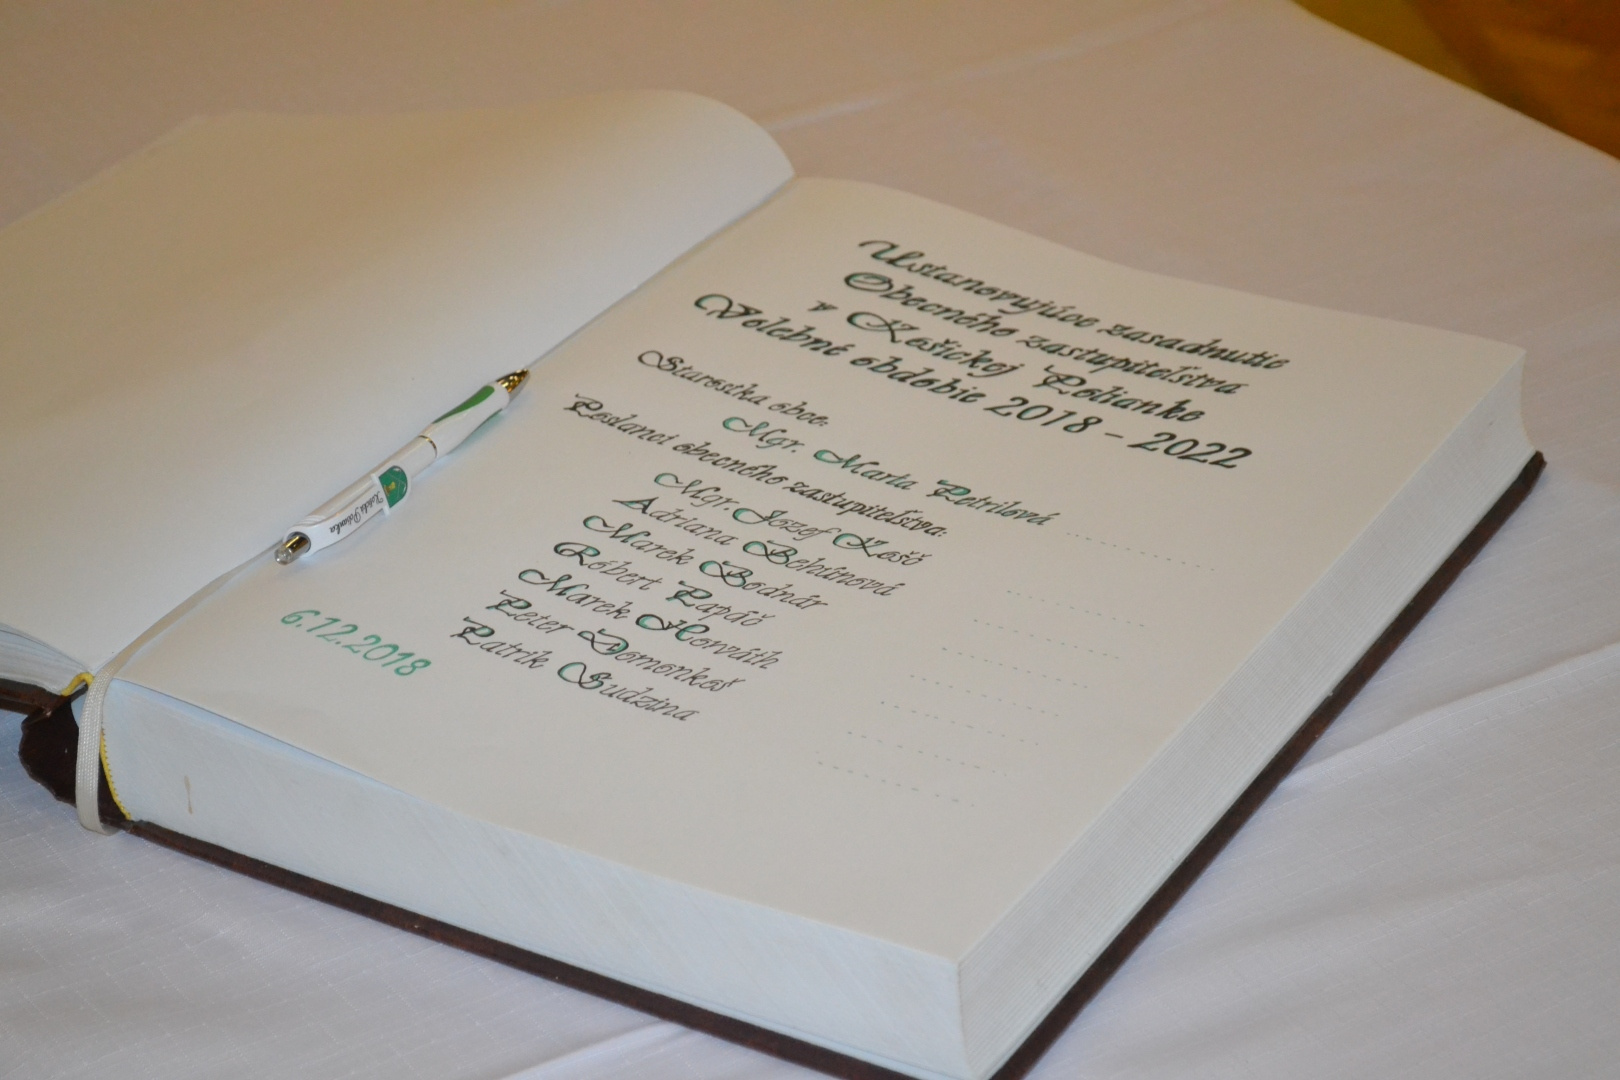 Ustanovujúce zasadnutie
Obecného zastupiteľstva
v Košickej Polianke
Volebné obdobie 2018 - 2022
Starostka obce:
Mgr. Marta Petrilová ................
Poslanci obecného zastupiteľstva:
Mgr. Jozef Košč
Adriana Behúnová
Marek Bodnár
Róbert Papáč
Marek Horváth
Peter Domonkoš
Patrik Sudzina
6.12.2018
Košická Polianka